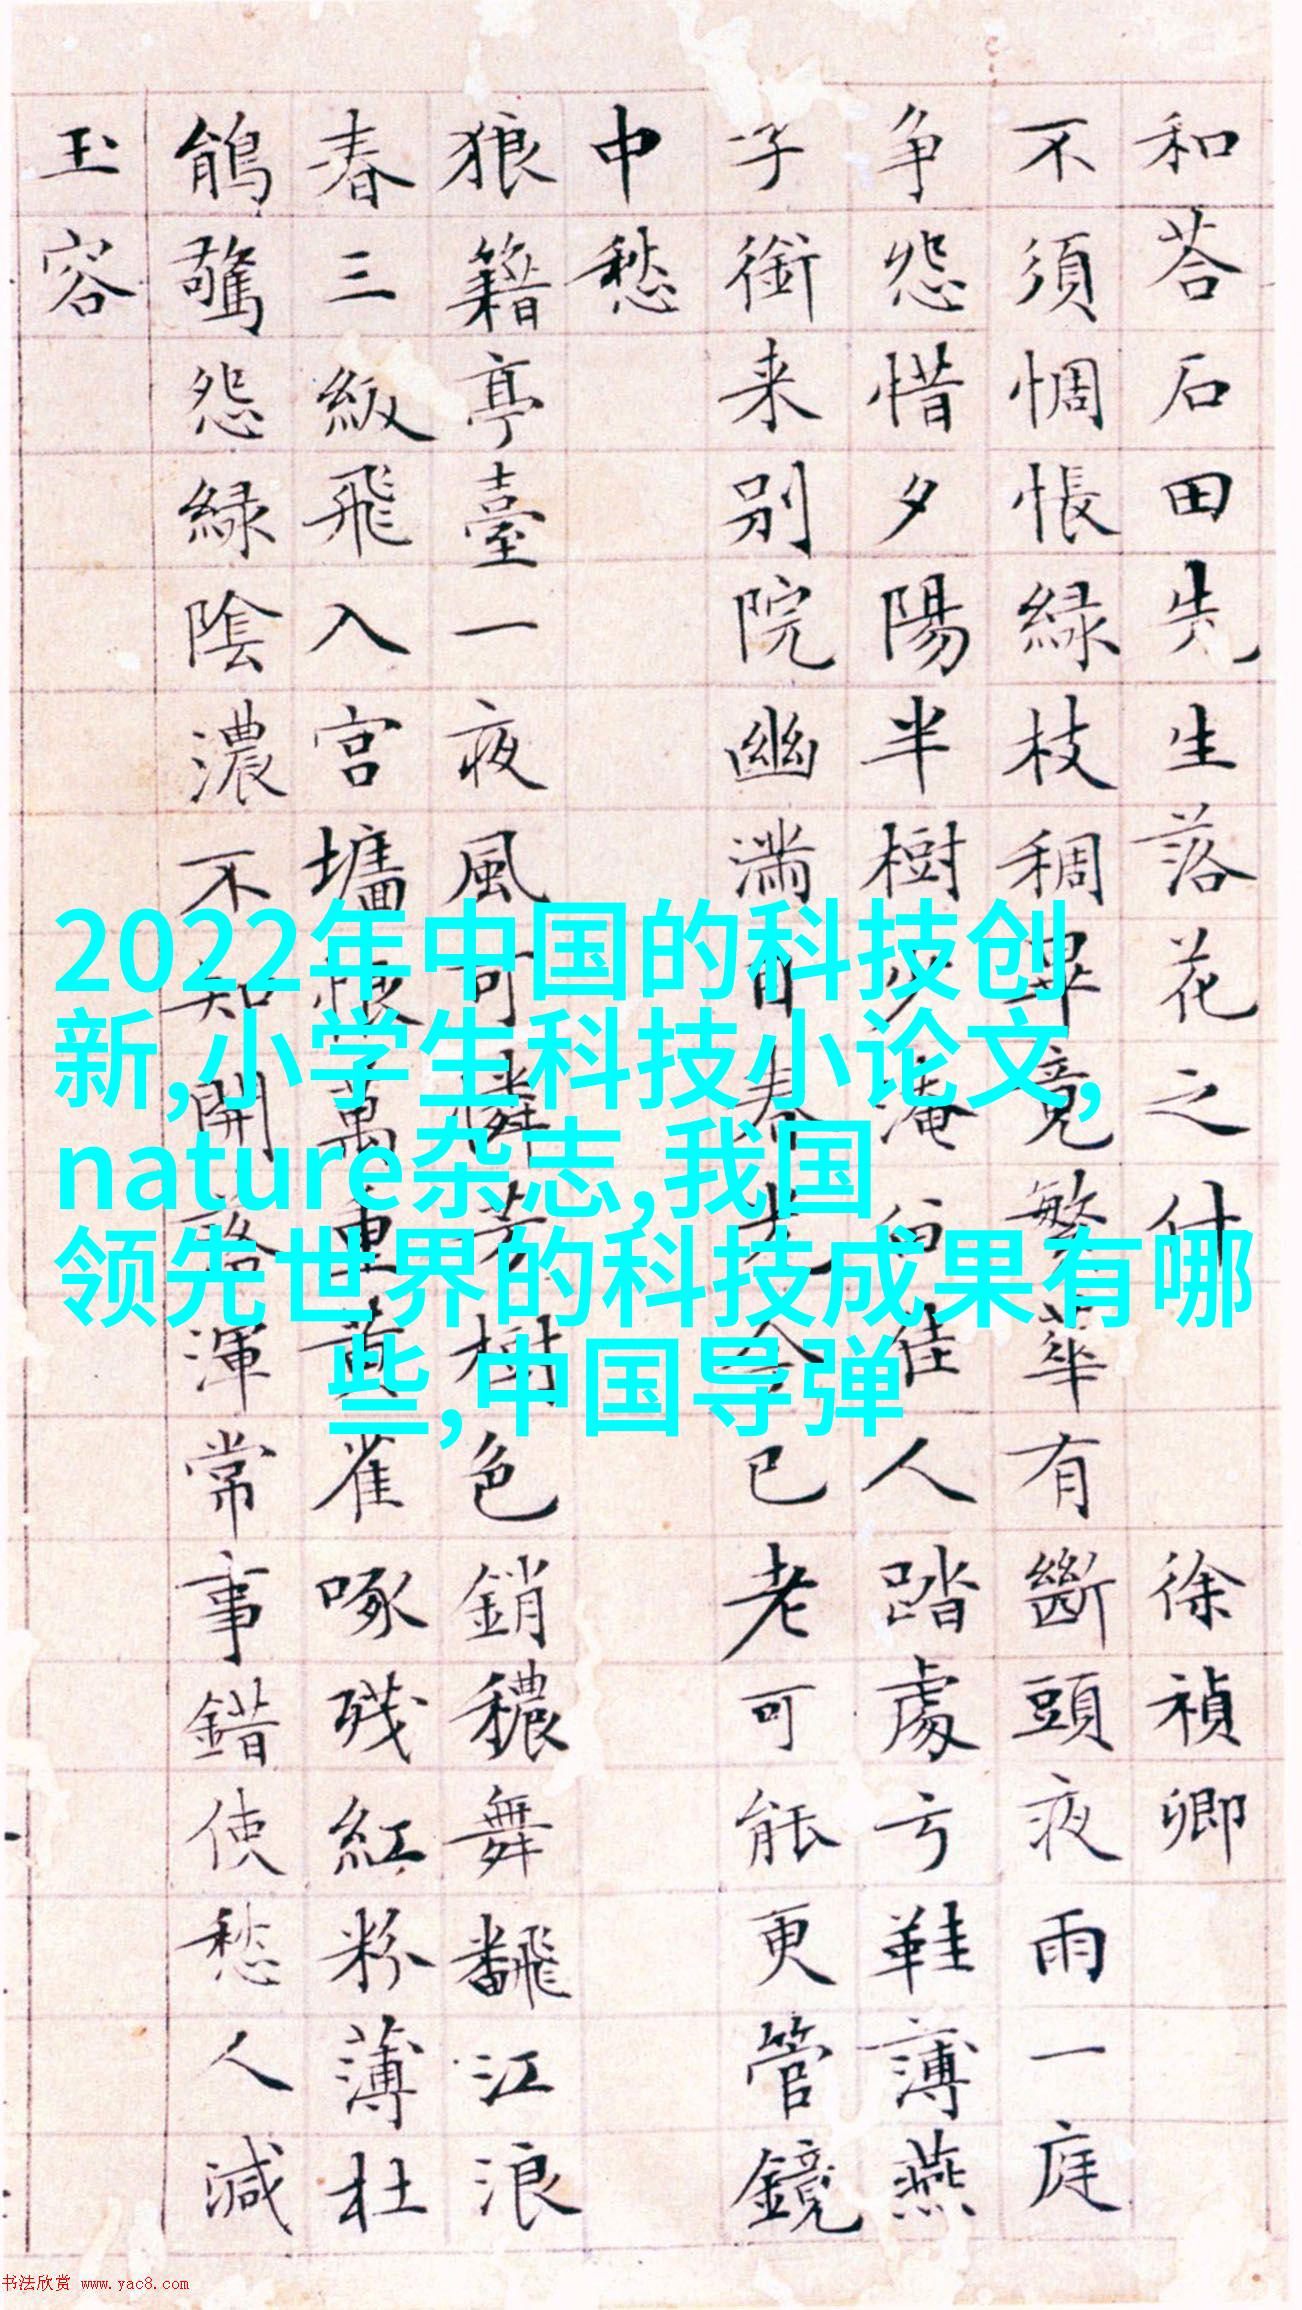 和荅石田先生落花之什 徐禎卿
不須惆悵綠枝稠畢竟繁華有斷頭夜雨一庭
争怨惜夕陽半樹少淹留佳人踏處弓鞋薄燕
子銜来别院幽满目春光今已老可能更管鏡
中愁
狼籍亭臺一夜風可憐芳樹色銷穠舞飜江浪
春三級飛入宮墻根萬重黄雀啄殘紅粉薄杜
鵑驚怨緑陰濃不知開落渾常事錯使愁人減
玉容
2022年中国的科技创
新,小学生科技小论文,
nature杂志,我国
领先世界的科技成果有哪
些,中国导弹
书法欣赏 www.yac8.com